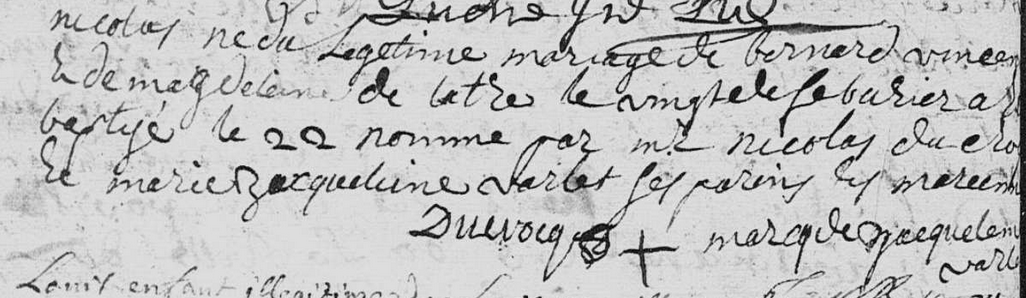 nicolas né du Legetime mariage de bernard vincen
et de magdeleine de lattre le vingte de febvrier a
baptisé le 22 nomme par mr nicolas du cro
et marie Jacqueleine varlet ses parins et mareinne
Ducrocq + marcq de Jacquelein
varl
Louis enfant illegitime